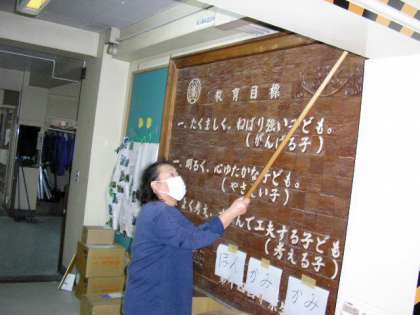 教育目標
一、たくましく、ねばり強い子ども。
(がんばる子)
一、明るく、心ゆたかな子ども。
(やさしい子)
よく考え、
んで工夫する子ども
(考える子)
かみ
かみ